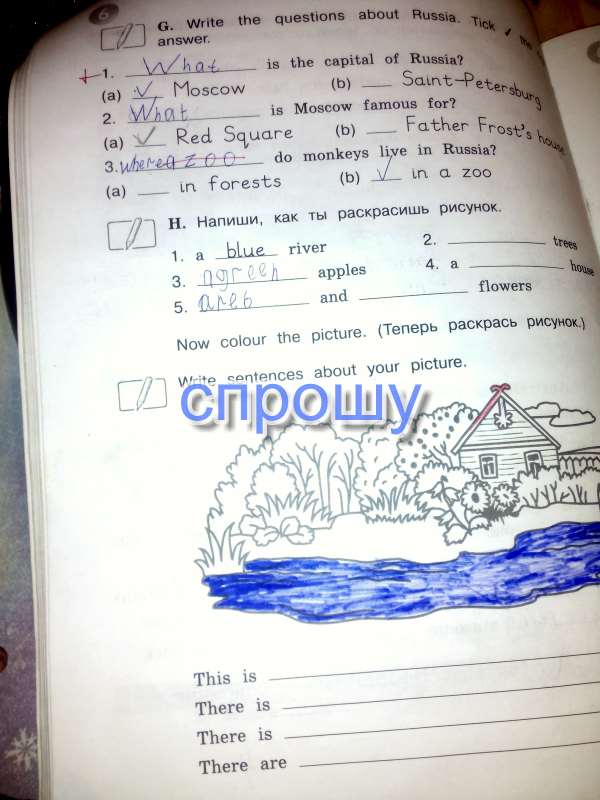 6
G. Write the questions about Russia. Tick ✓ the
answer.
+1. What is the capital of Russia?
(a) ✓ Moscow (b) ___ Saint-Petersburg
2. What is Moscow famous for?
(a) ✓ Red Square (b) ___ Father Frost's house
3. where a zoo do monkeys live in Russia?
(a) ___ in forests (b) ✓ in a zoo
H. Напиши, как ты раскрасишь рисунок.
1. a blue river 2. ___ trees
3. agreen apples 4. a ___ house
5. areb and ___ flowers
Now colour the picture. (Теперь раскрась рисунок.)
Write sentences about your picture.
спрошу
This is
There is
There is
There are